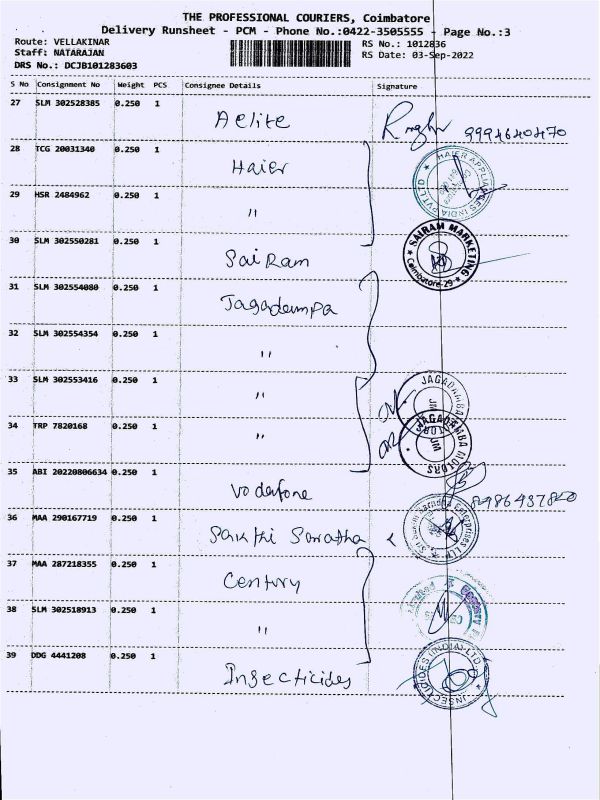 THE PROFESSIONAL COURIERS, Coimbatore
Delivery Runsheet - PCM - Phone No.:0422-3505555 - Page No.:3
Route: VELLAKINAR
Staff: NATARAJAN
DRS No.: DCJB101283603
RS No.: 1012836
RS Date: 03-Sep-2022
S No Consignment No Weight PCS Consignee Details Signature
27 SLM 302528385 0.250 1 Aelite 9994640470
28 TCG 20031340 0.250 1 Haier HAIER APPLIANCES INDIA PVT LTD
29 HSR 2484962 0.250 1 "
30 SLM 302550281 0.250 1 Sai Ram SAIRAM MARKETING Coimbatore-29
31 SLM 302554080 0.250 1 Jagadempa
32 SLM 302554354 0.250 1 "
33 SLM 302553416 0.250 1 " JAGADAMBA
34 TRP 7820168 0.250 1 " JAGADAMBA MOTORS
35 ABI 20220806634 0.250 1 Vodafone
36 MAA 290167719 0.250 1 Sakthi Saratha
37 MAA 287218355 0.250 1 Century
38 SLM 302518913 0.250 1 "
39 DDG 4441208 0.250 1 Insecticides INSECTICIDES (INDIA) LTD